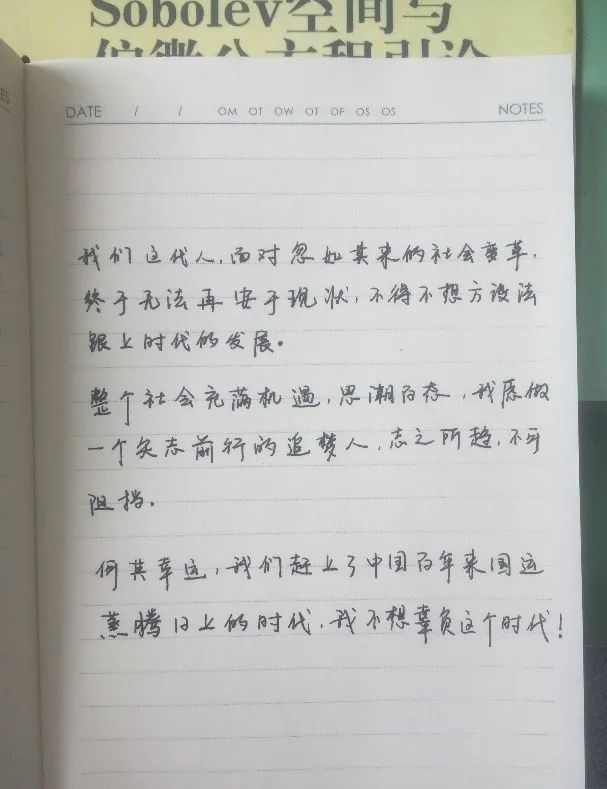 Sobolev空间与
偏微分方程引论
ES
DATE / / OM OT OW OT OF OS OS NOTES
我们这代人,面对忽如其来的社会变革,
终于无法再安于现状,不得不想方设法
跟上时代的发展。
整个社会充满机遇,思潮百态,我愿做
一个矢志前行的追梦人,志之所趋,不可
阻挡。
何其幸运,我们赶上了中国百年来国运
蒸腾日上的时代,我不想辜负这个时代!